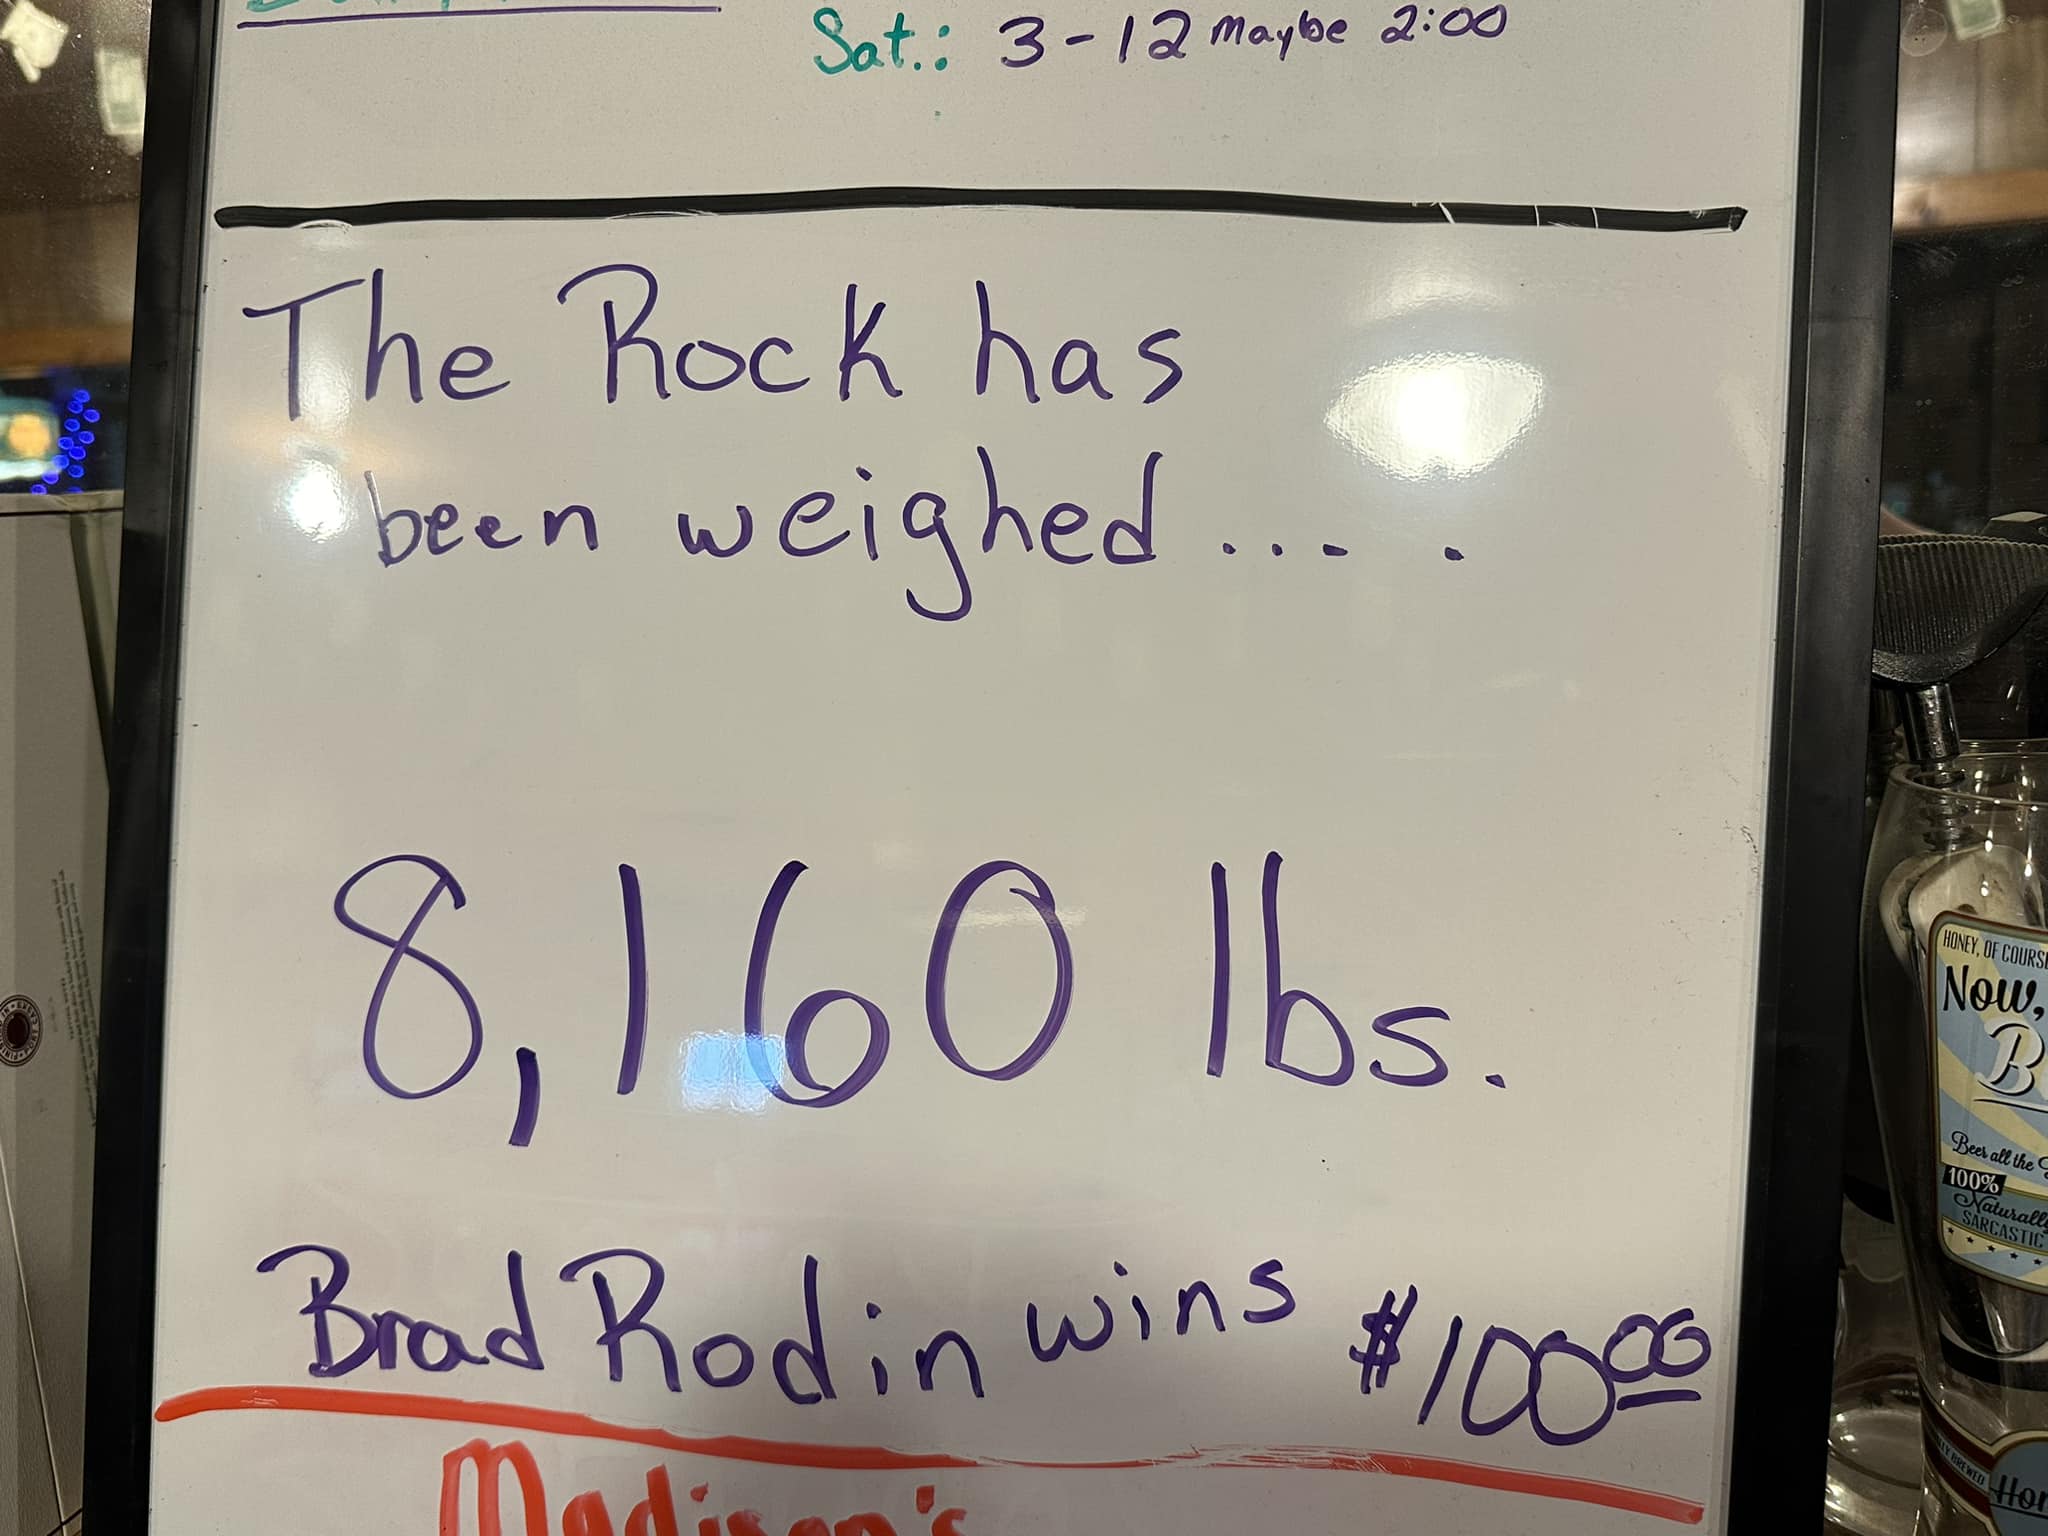 Sat.: 3-12 Maybe 2:00
The Rock has
been weighed.... .
8,160 lbs.
Brad Rodin wins $100⁰⁰
Madison's
HONEY, OF COURSE
Now,
Beer all the
100%
Naturally
SARCASTIC